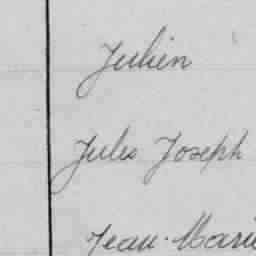 Julien
Jules Joseph
Jean-Marie